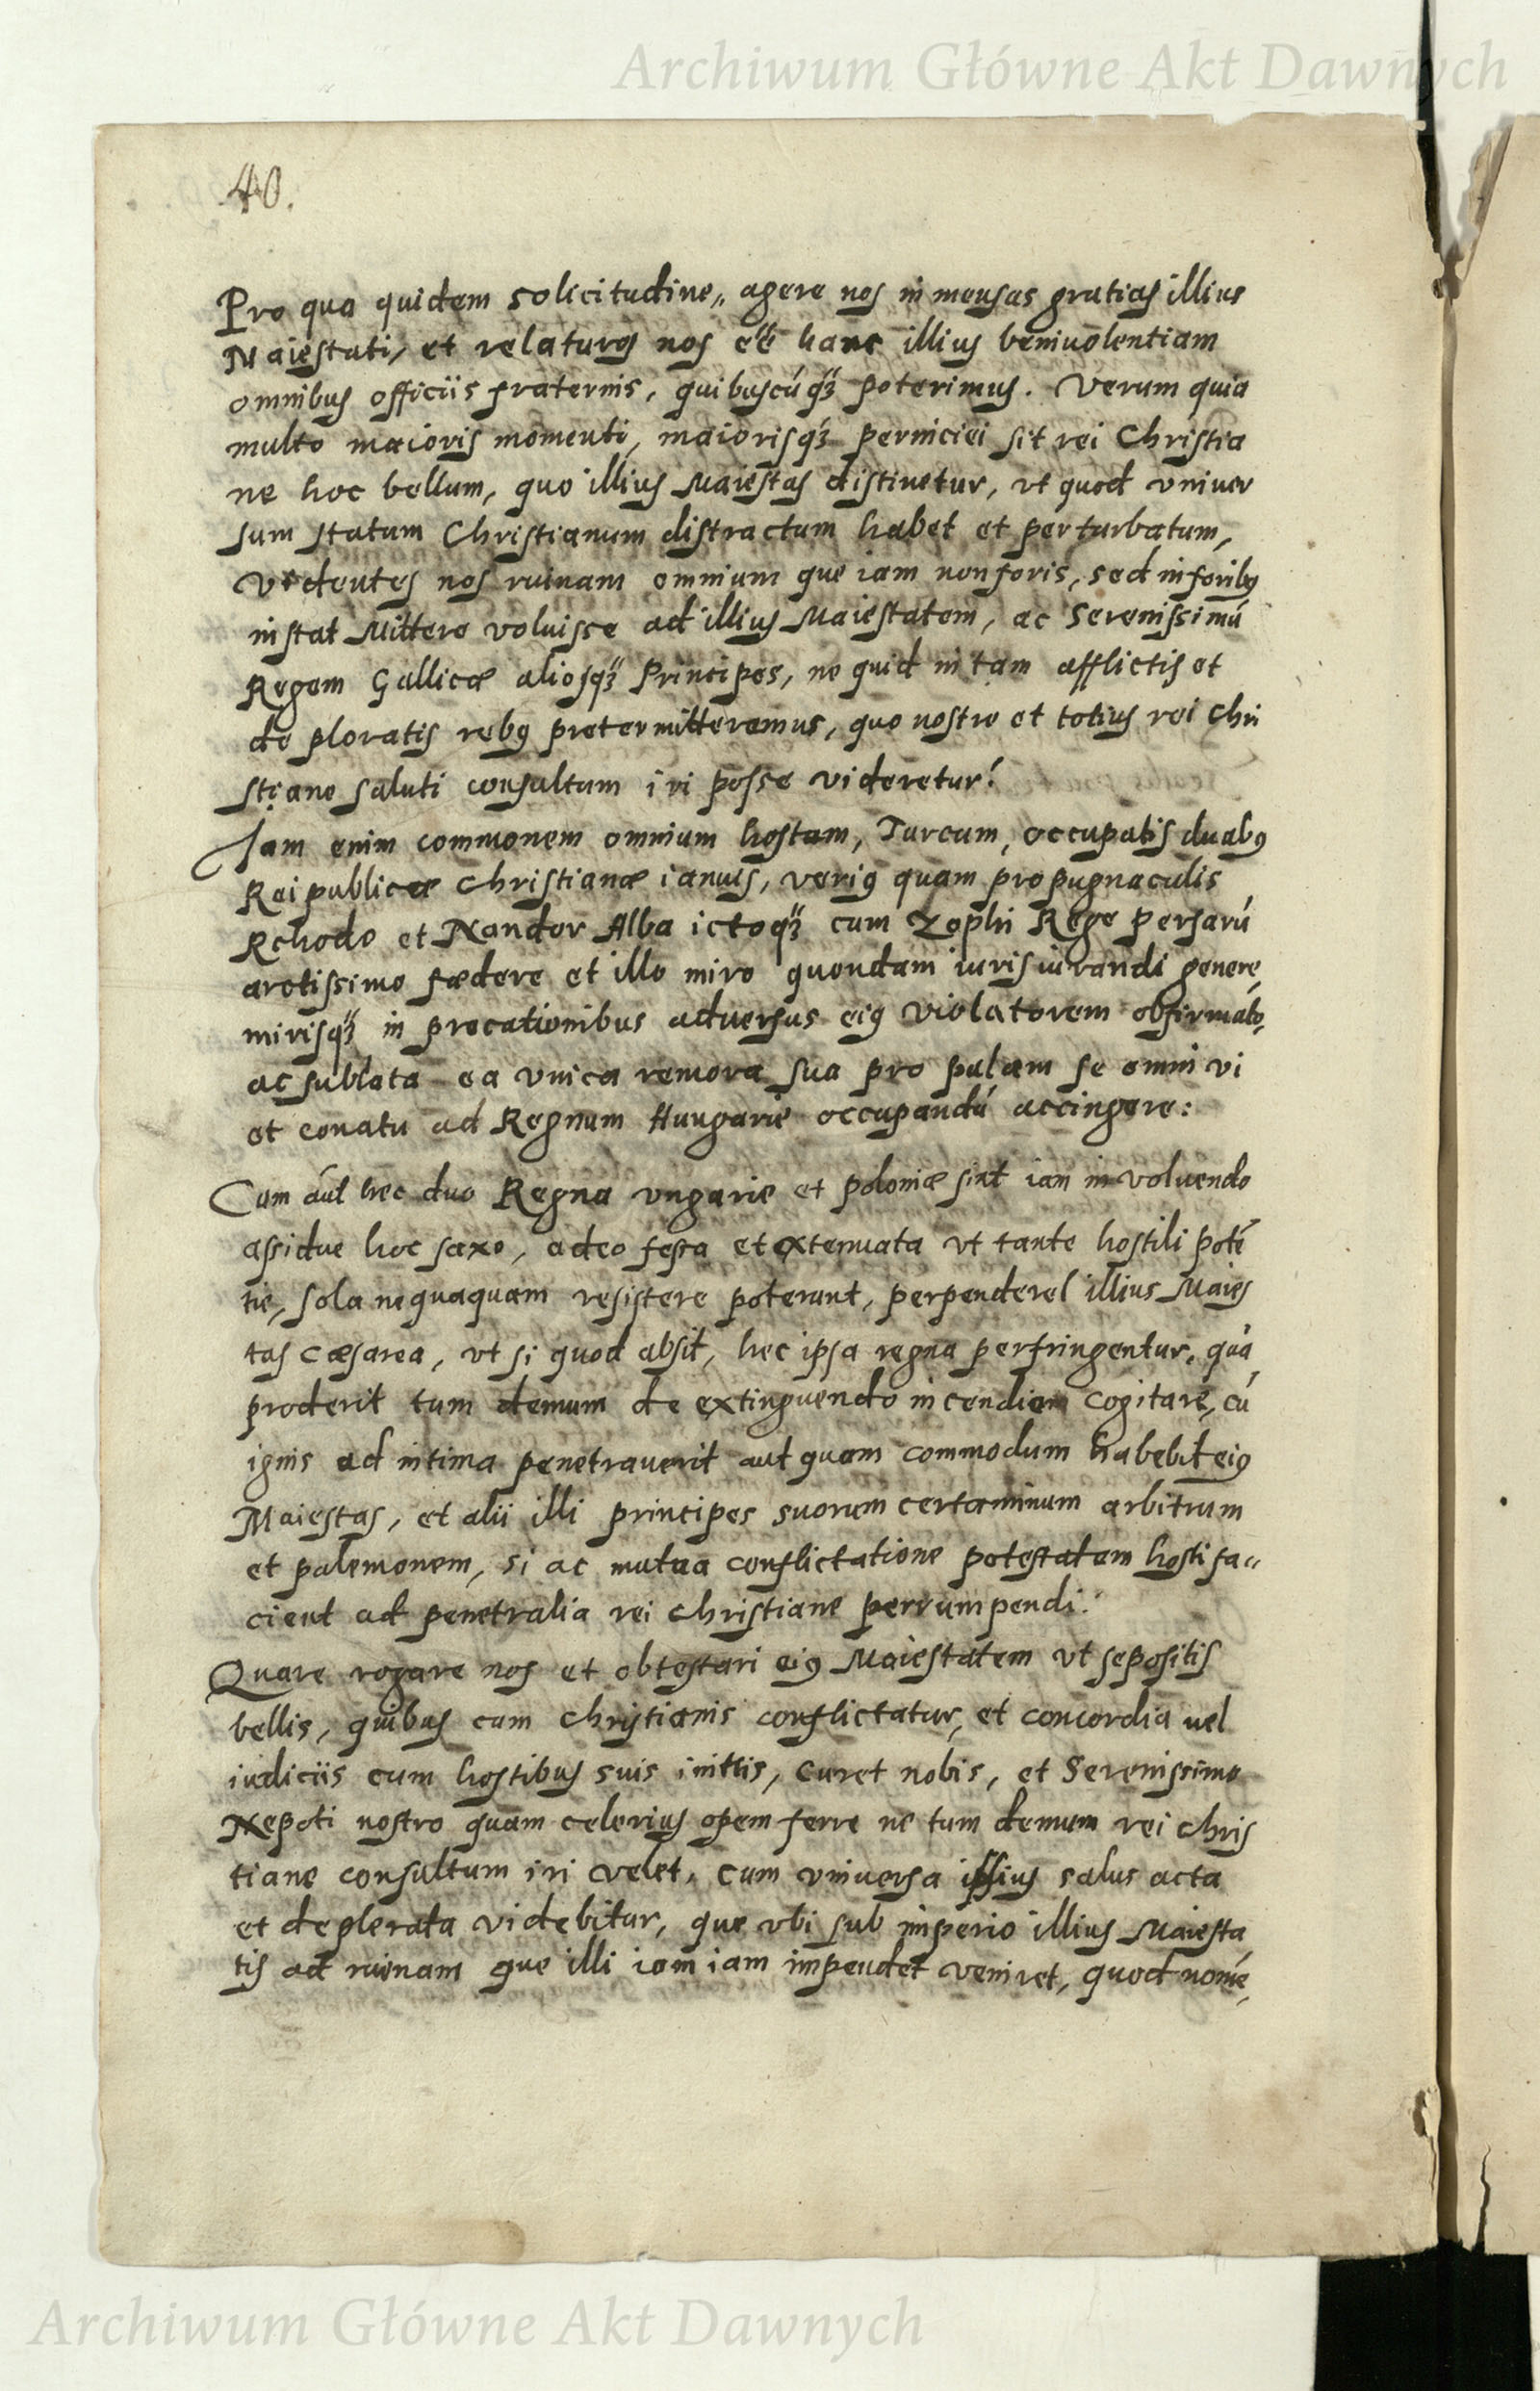 Archiwum Główne Akt Dawnych
40.
Pro qua quidem solicitudine„ agere nos inmensas gratias illius
Maiestati, et relaturos nos eē hanc illius beniuolentiam
omnibus officiis fraternis, quibuscúqȝ poterimus. Verum quia
multo maioris momenti, maiorisqȝ perniciei sit rei Christia
ne hoc bellum, quo illius Maiestas distinetur, vt quod vniuer
sum statum Christianum distractum habet et perturbatum,
videntes nos ruinam omnium que iam non foris, sed in foribꝰ
instat Mittere voluisse ad illius Maiestatem, ac Serenissimú
Regem Gallicæ aliosqȝ Principes, ne quid in tam afflictis et
de ploratis rebꝰ pretermitteremus, quo nostre et totius rei Chri
stiane saluti consultum iri posse videretur!
Jam enim commonem omnium hostam, Turcum, occupatis duabꝰ
Reipublicæ Christianæ ianuis, veriꝰ quam propugnaculis
Rchodo et Nandor Alba ictoqȝ cum Zophi Rege Persarú
arctissimo fædere et illo miro quondam iurisiurandi genere,
mirisqȝ in precationibus aduersus eiꝰ violatorem obfirmato,
ac sublata ea vnica remora sua pro palam se omni vi
et conatu ad Regnum Hungarie occupandú accingere:
Cum áut hec duo Regna vngarie et poloniæ sint iam in voluendo
assidue hoc saxo, adeo fessa et extenuata vt tante hostili poté
tie, sola nequaquam resistere poterunt, perpenderet illius Maies
tas Cæsarea, vt si quod absit, hec ipsa regna perfringentur, quá
proderit tum demum de extinguendo incendiom cogitare, cú
ignis ad intima penetrauerit aut quam commodum habebit eiꝰ
Maiestas, et alii illi principes suorum certaminum arbitrum
et palemonem, si ac mutua conflictatione potestatem hosti fa„
cient ad penetralia rei christiane perrumpendi:
Quare rogare nos et obtestari eiꝰ Maiestatem vt sepositis
bellis, quibus cum christianis conflictatur, et concordia uel
iudiciis cum hostibus suis initis, curet nobis, et Serenissimo
Nepoti nostro quam celerius opem ferre ne tum demum rei chris
tiane consultum iri velet, cum vniuersa ipsius salus acta
et deplerata videbitur, que vbi sub imperio illius Maiesta
tis ad ruinam que illi iam iam impendet veniret, quod nomé,
Archiwum Główne Akt Dawnych